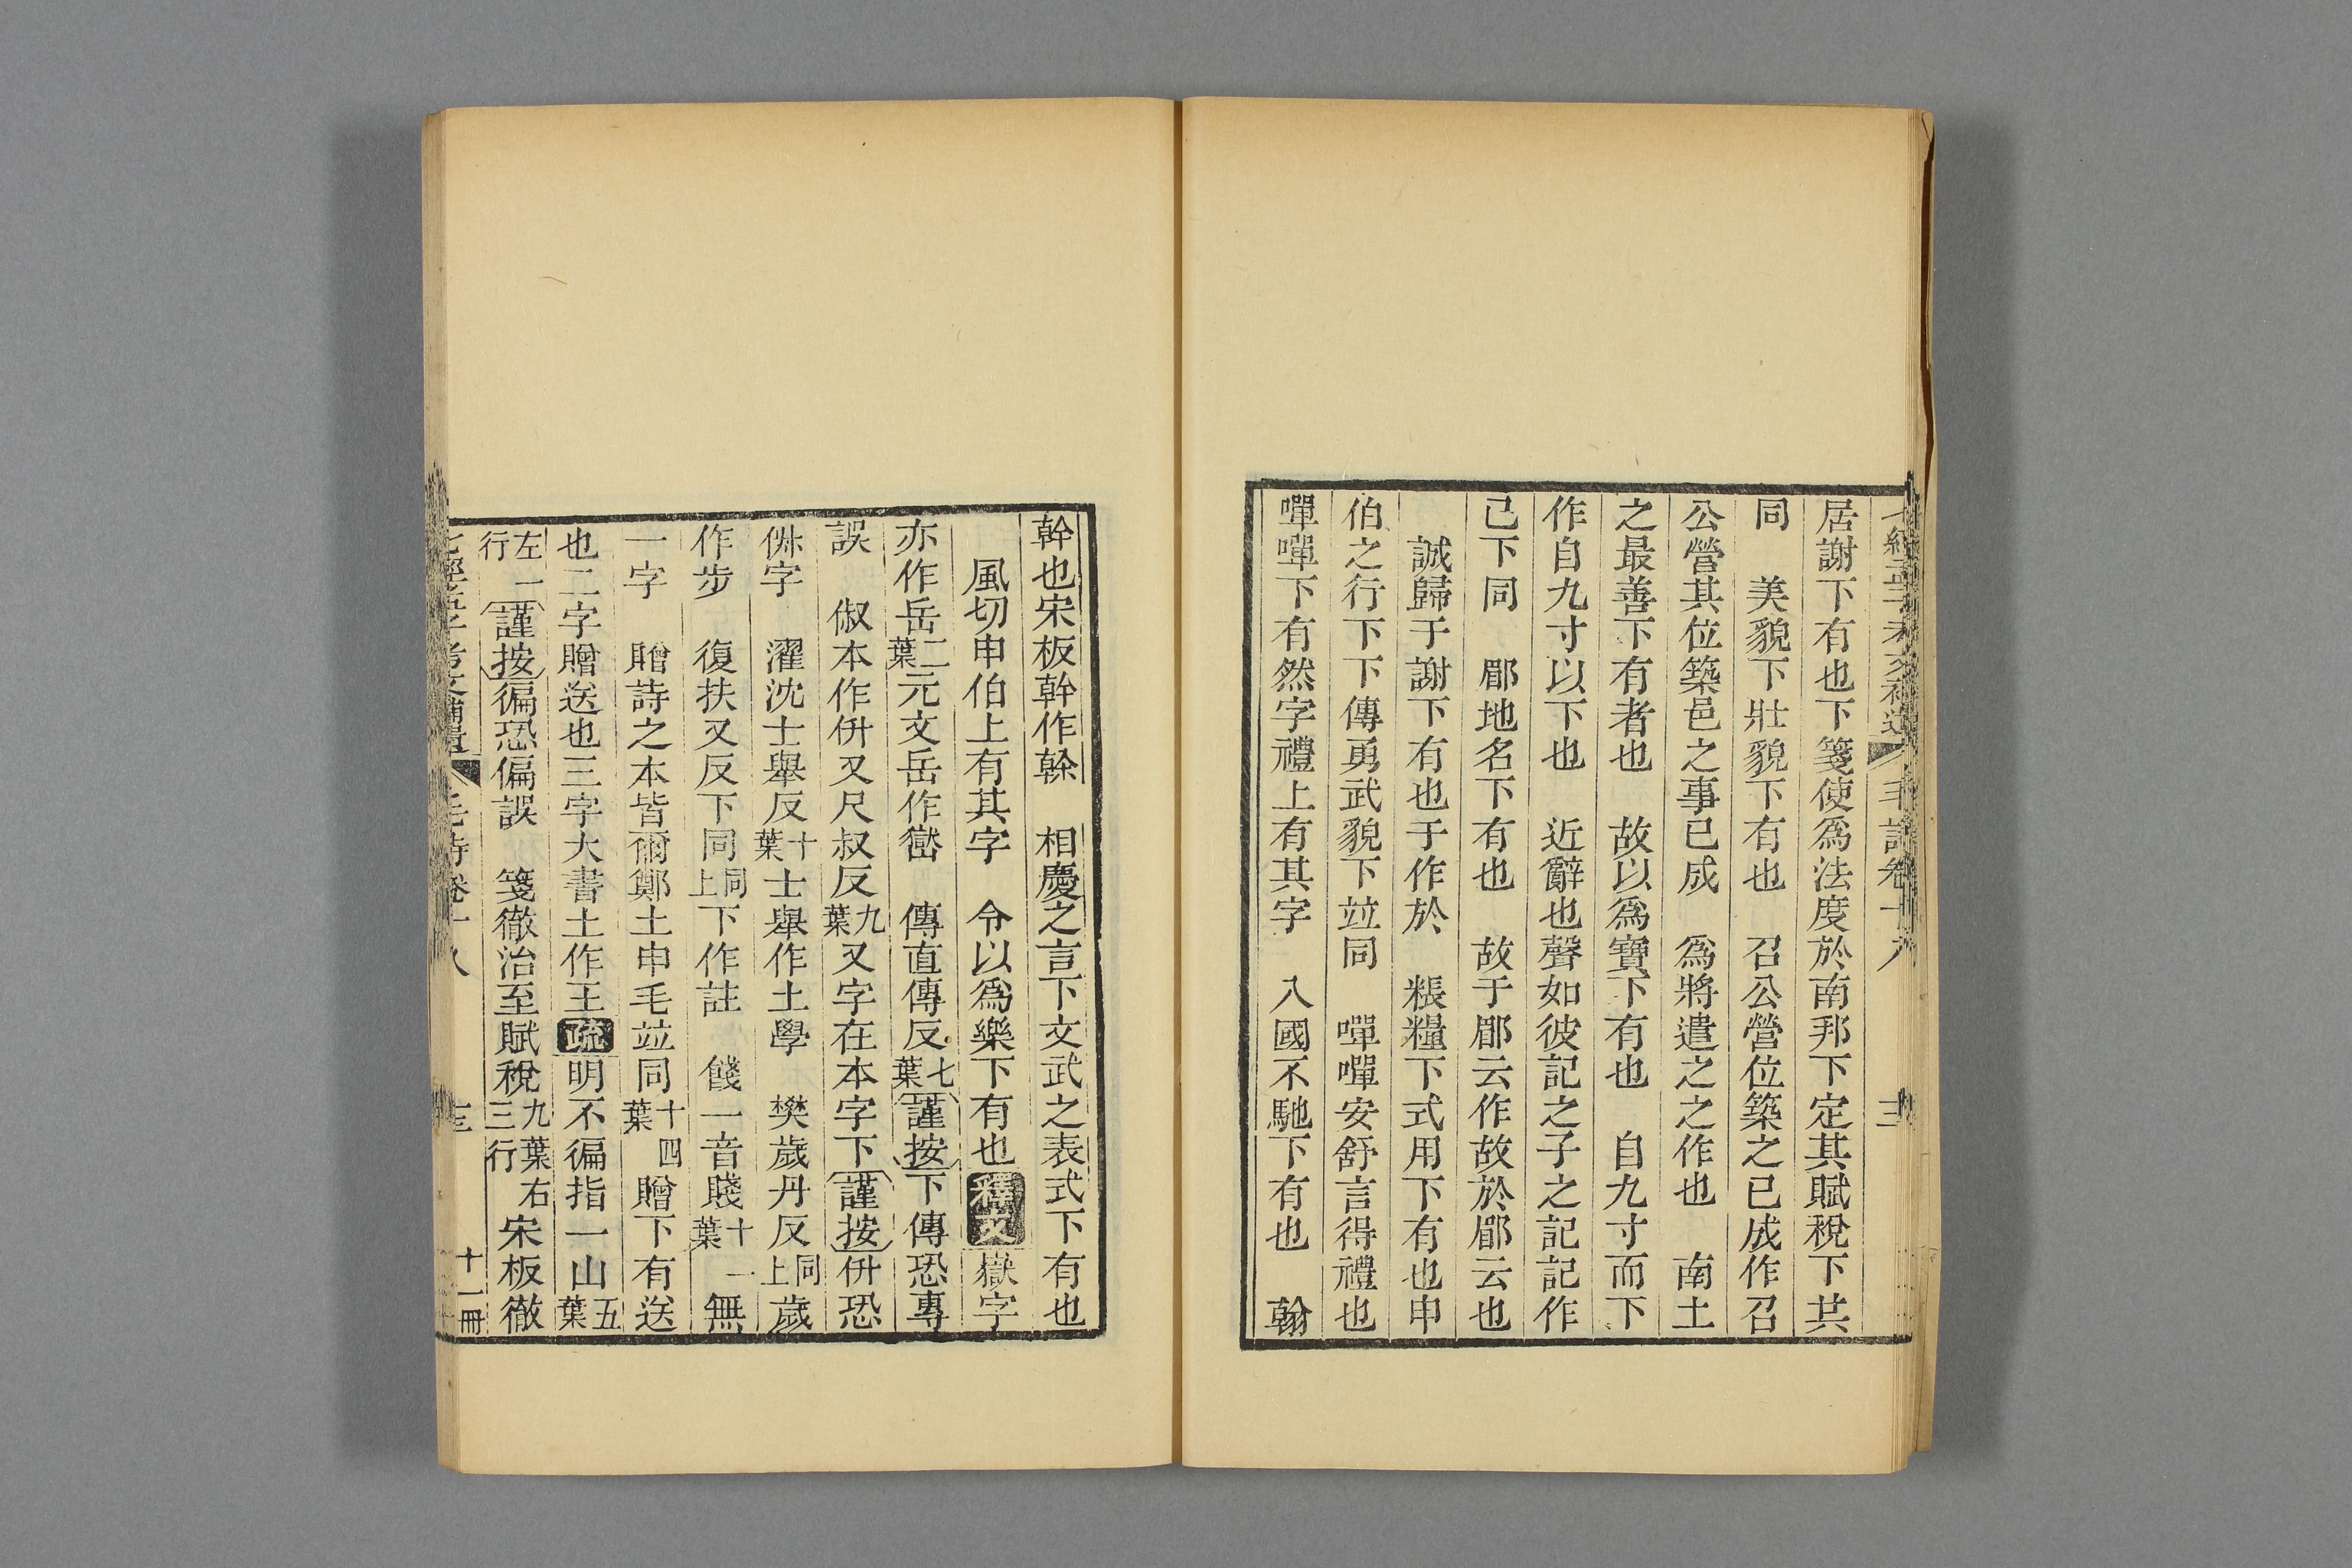 居謝下有也下箋使爲法度於南邦下定其賦稅下其
同　美貌下壯貌下有也　召公營位築之已成作召
公營其位築邑之事已成　爲將遣之之作也　南土
之最善下有者也　故以爲寶下有也　自九寸而下
作自九寸以下也　近辭也聲如彼記之子之記記作
己下同　郿地名下有也　故于郿云作故於郿云也
誠歸于謝下有也于作於　粻糧下式用下有也申
伯之行下下傳勇武貌下竝同　嘽嘽安舒言得禮也
嘽嘽下有然字禮上有其字　入國不馳下有也　翰
幹也宋板幹作榦　相慶之言下文武之表式下有也
風切申伯上有其字　令以爲樂下有也釋文嶽字
亦作岳二葉元文岳作巒　傳直傳反七葉謹按下傳恐專
誤　俶本作倂又尺叔反九葉又字在本字下謹按倂恐
併字　濯沈士舉反十葉士舉作土學　樊歲丹反同上歲
作步　復扶又反下同同上下作註　餞一音賤十一葉無
一字　贈詩之本皆爾鄭土申毛竝同十四葉贈下有送
也二字贈送也三字大書土作王疏明不徧指一山五葉
左一行謹按徧恐偏誤　箋徹治至賦稅九葉右三行宋板徹
毛詩卷十八
十一冊